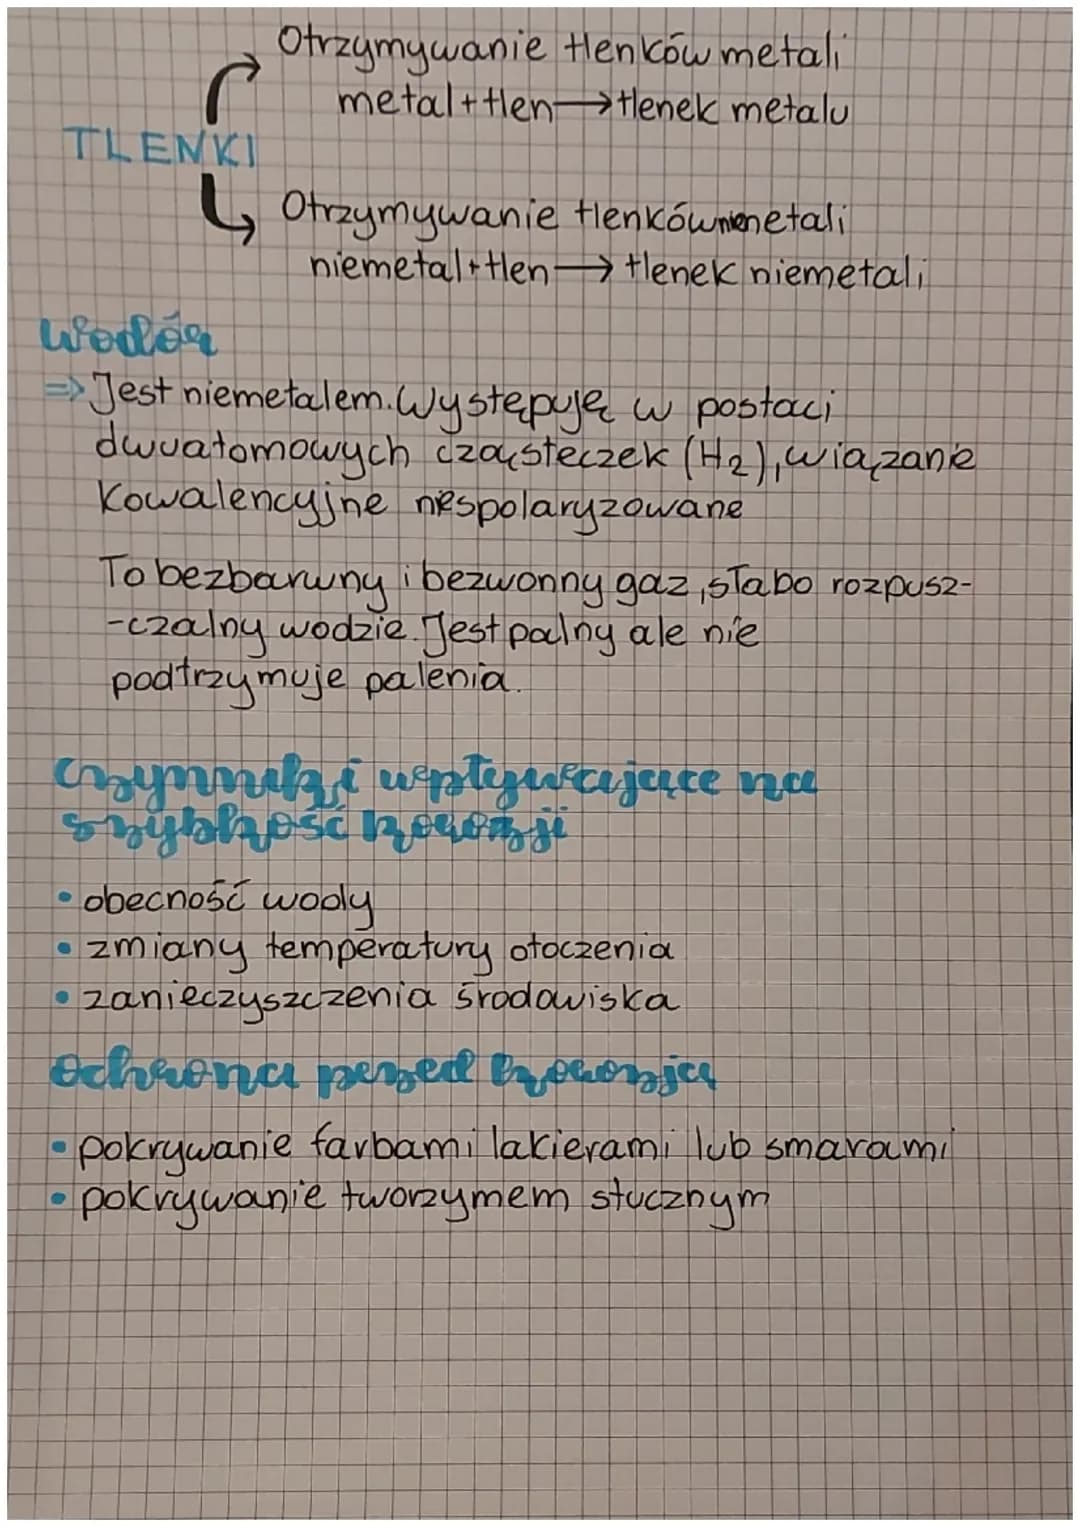 Otrzymywanie tlenków metali
metal + tlen → tlenek metalu
TLENKI
Otrzymywanie tlenków niemetali
niemetal + tlen → tlenek niemetali
Wodór
⇒ Jest niemetalem. Występuję w postaci
dwuatomowych cząsteczek (H2), wiązanie
kowalencyjne niespolaryzowane
To bezbarwny i bezwonny gaz, słabo rozpusz-
-czalny wodzie. Jest palny ale nie
podtrzymuje palenia.
Czynniki wpływające na
szybkość korozji
• obecność wody
• zmiany temperatury otoczenia
• zanieczyszczenia środowiska
Ochrona przed korozją
• pokrywanie farbami lakierami lub smarami
• pokrywanie tworzymem stucznym